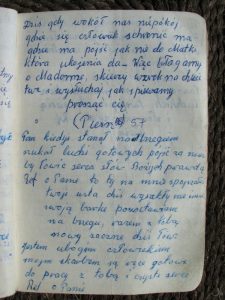 Dziś gdy wokół nas niepokój
gdzie się człowiek schronić ma
gdzie ma pójść jak nie do Matki
która ukojenia da Więc błagamy
o Madonno, skieruj wzrok na dzieci
twe i wysłuchaj jak śpiewamy
prosząc cię
Pieśń 57
Pan kiedyś stanął nad brzegiem
szukał ludzi gotowych pójść za nim
by łowić serca słów Bożych prawdą
Ref o Panie to ty na mnie spojrzałeś
twoje usta dziś wyrzekły me imię
swoją barkę pozostawiam
na brzegu, razem z tobą
nowy zacznę dziś łów
Jestem ubogim człowiekiem
moim skarbem są ręce gotowe
do pracy z tobą i czyste serce
Ref o Panie